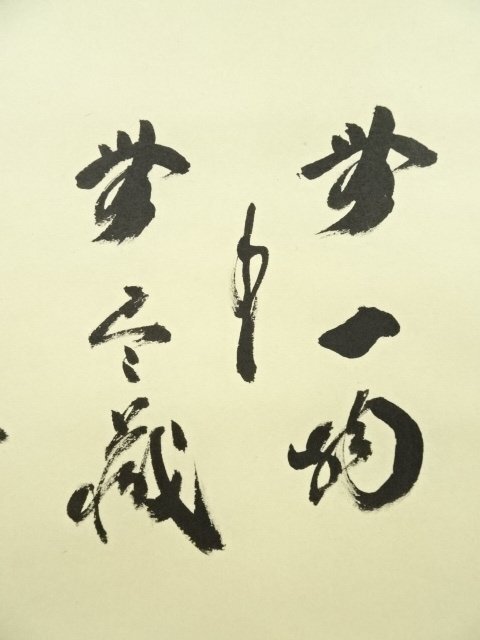 無一物
中
無尽蔵